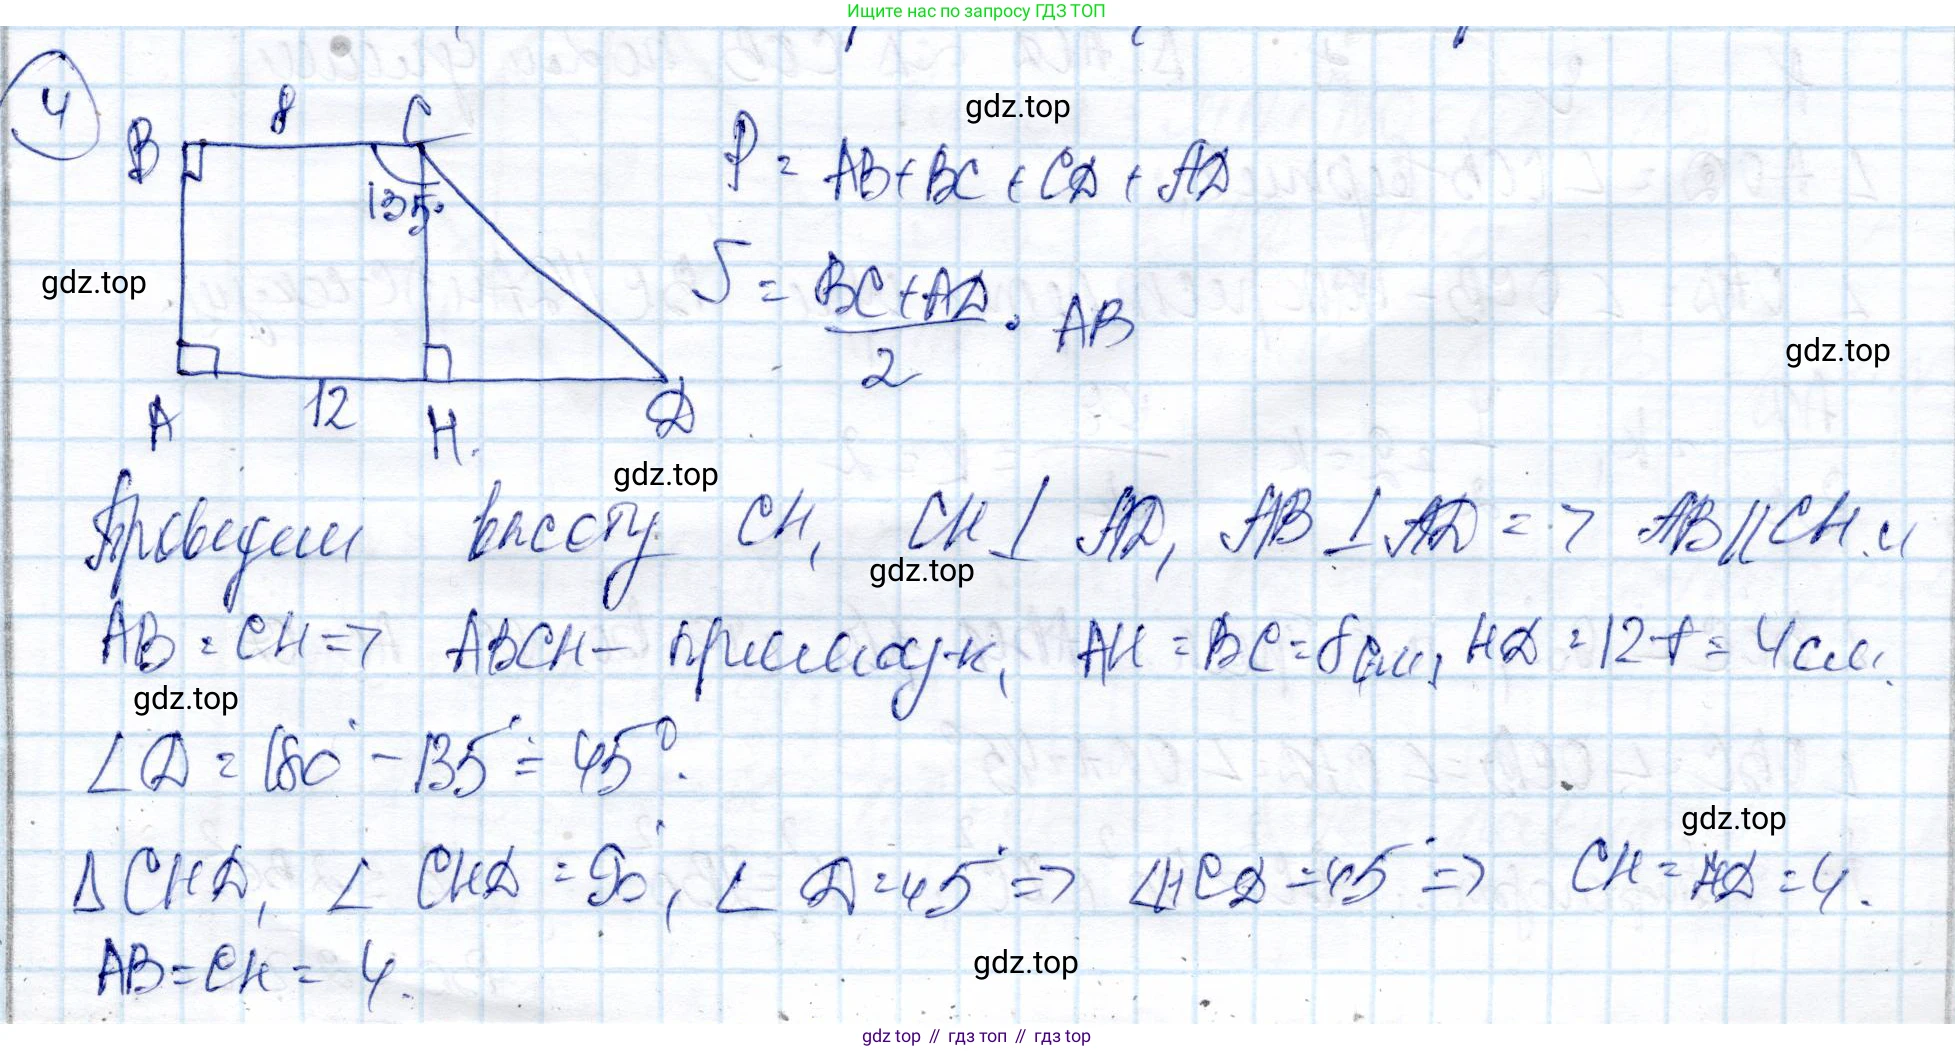 Ищите нас по запросу ГДЗ ТОП
4
8
B
C
135°
gdz.top
P = AB+BC+CD+AD
gdz.top
S = BC+AD / 2 · AB
gdz.top
A
12
H.
D
gdz.top
Проведем высоту CH, CH ⊥ AD, AB ⊥ AD => AB || CH и
gdz.top
AB = CH => ABCH – прямоуг-к, AH = BC = 8 см, HD = 12-8 = 4 см.
gdz.top
∠D = 180° - 135° = 45°.
gdz.top
Δ CHD, ∠ CHD = 90°, ∠ D = 45° => ∠HCD = 45° => CH = HD = 4.
AB = CH = 4.
gdz.top
gdz top // гдз топ // гдз top